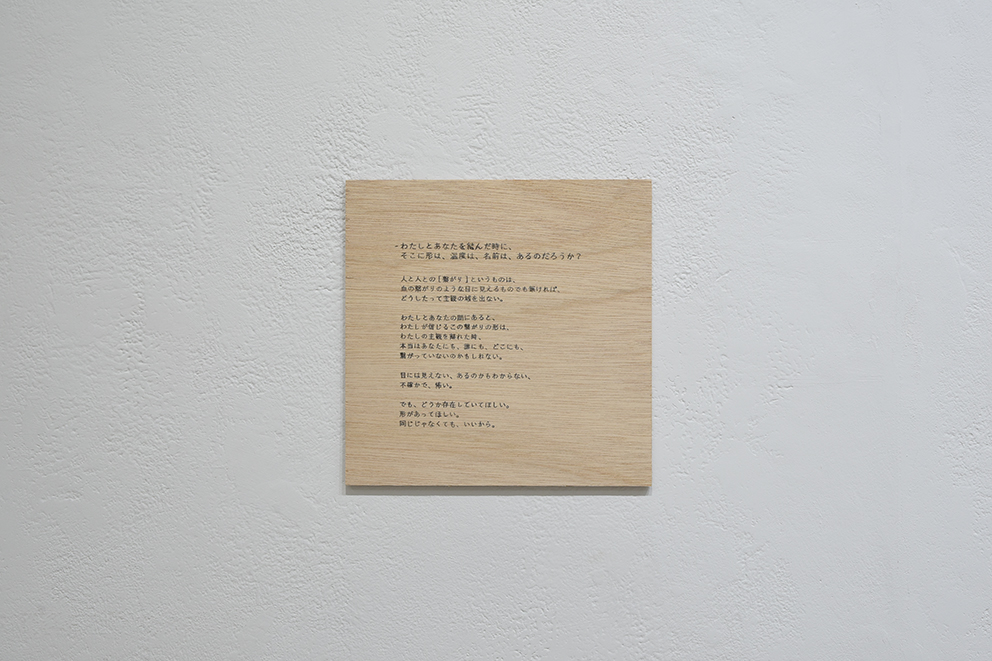 -わたしとあなたを編んだ時に、
そこに形は、温度は、名前は、あるのだろうか?
人と人との[繋がり]というものは、
血の繋がりのような目に見えるものでも無ければ、
どうしたって主観の域を出ない。
わたしとあなたの間にあると、
わたしが信じるこの繋がりの形は、
わたしの主観を離れた時、
本当はあなたにも、誰にも、どこにも、
繋がっていないのかもしれない。
目には見えない、あるのかもわからない、
不確かで、怖い。
でも、どうか存在していてほしい。
形があってほしい。
同じじゃなくても、いいから。